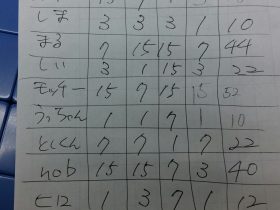 しま 3 3 3 1 10
まる 7 15 15 7 44
しい 3 1 15 3 22
モッチー 15 7 15 15 52
うっちゃん 1 1 7 1 10
としくん 7 7 1 7 22
nob 15 15 7 3 40
ヒロ 1 3 7 1 12